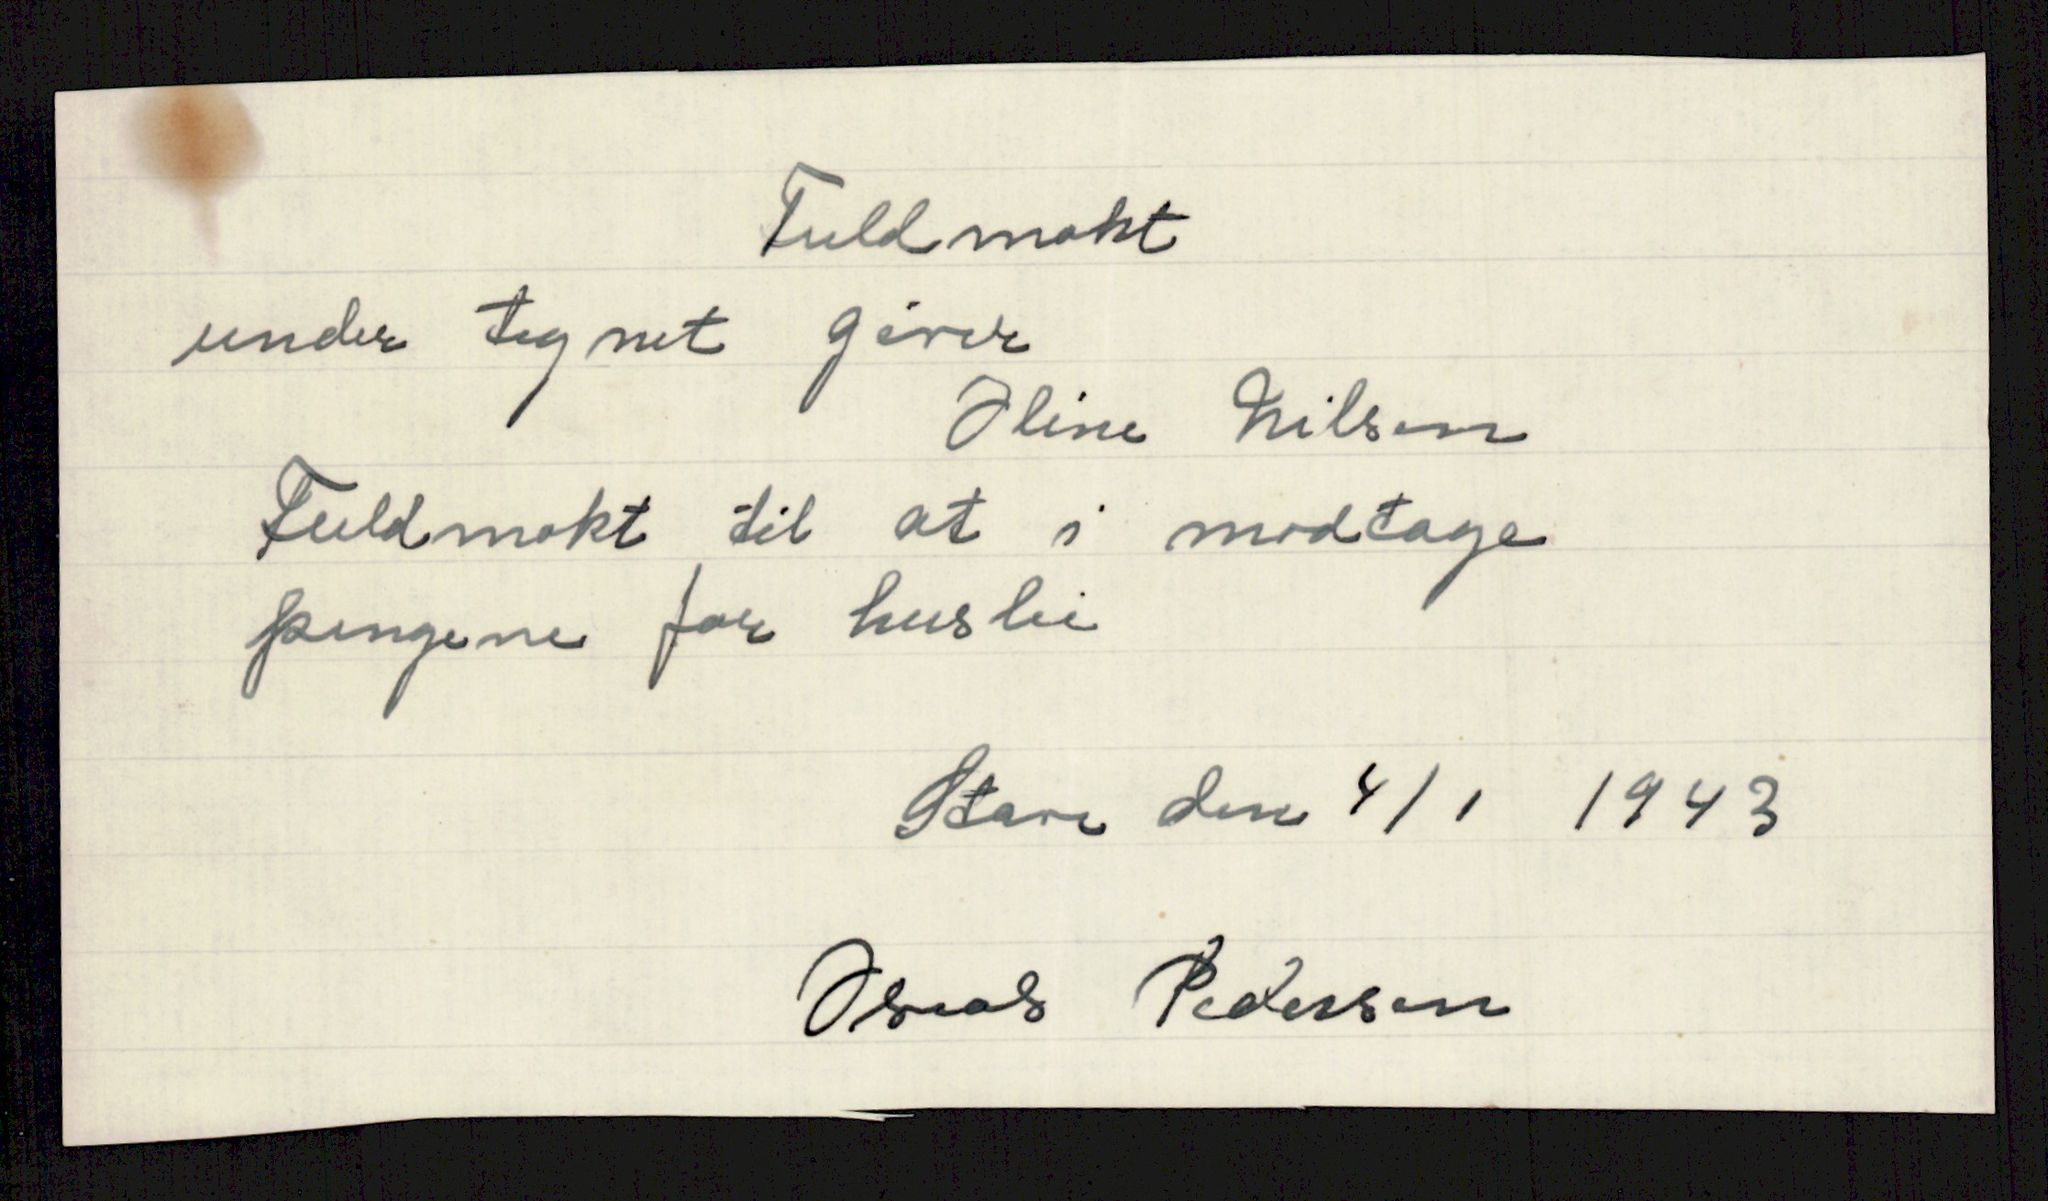 Fuldmakt
under tegnet giver
Oline Nilsen
Fuldmakt til at i modtage
pengene for huslei
Stave den 4/1 1943
Osvas Pedersen